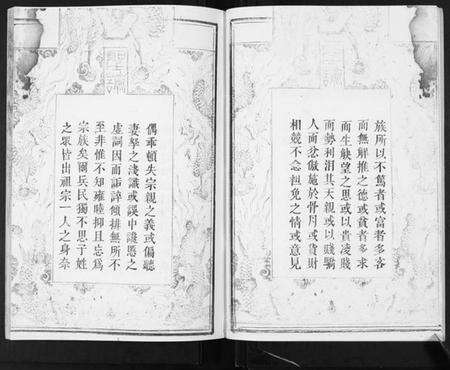 族所以不篤者或富者多吝
而無解推之德或貧者多求
而生觖望之思或以貴凌賤
而勢利汩其天親或以賤驕
人而忿傲施於骨肉或貨財
相競不念袒免之情或意見
偶乖頓失宗親之義或偏聽
妻孥之淺識或誤中讒慝之
虛詞因而詬誶傾排無所不
至非惟不知雍睦抑且忘爲
宗族矣爾兵民獨不思子姓
之眾皆出祖宗一人之身奈